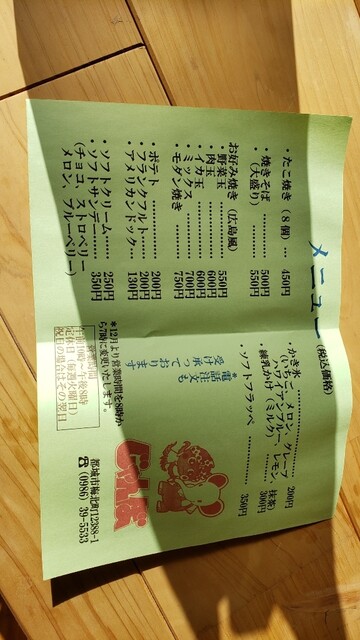 メニュー (税込価格)
・たこ焼き (8個)… 450円
・焼きそば ………… 500円
・ (大盛り) 550円
お好み焼き (広島風)
・野菜玉 ………… 550円
・肉玉 ………… 600円
・イカ玉 ………… 600円
・ミックス ………… 700円
・モダン焼き ………… 750円
・ポテト ………… 200円
・フランクフルト…… 200円
・アメリカンドック… 130円
・ソフトクリーム…… 250円
・ソフトサンデー…… 350円
(チョコ、ストロベリー
メロン、ブルーベリー)
・かき氷 ………… 200円
(いちご、メロン、グレープ
ハワイアンブルー、レモン、
抹茶)
・練乳かけ (ミルク) 300円
・ソフトフラッペ 350円
*電話注文も
受け承って
おります
営業時間
午前10時〜午後8時
定休日(毎週火曜日)
祝日の場合はその翌日
*12月より営業時間を8時か
ら7時に変更いたします。
じゃんぼ
都城市梅北町12388-1
☎ (0986) 39-5533